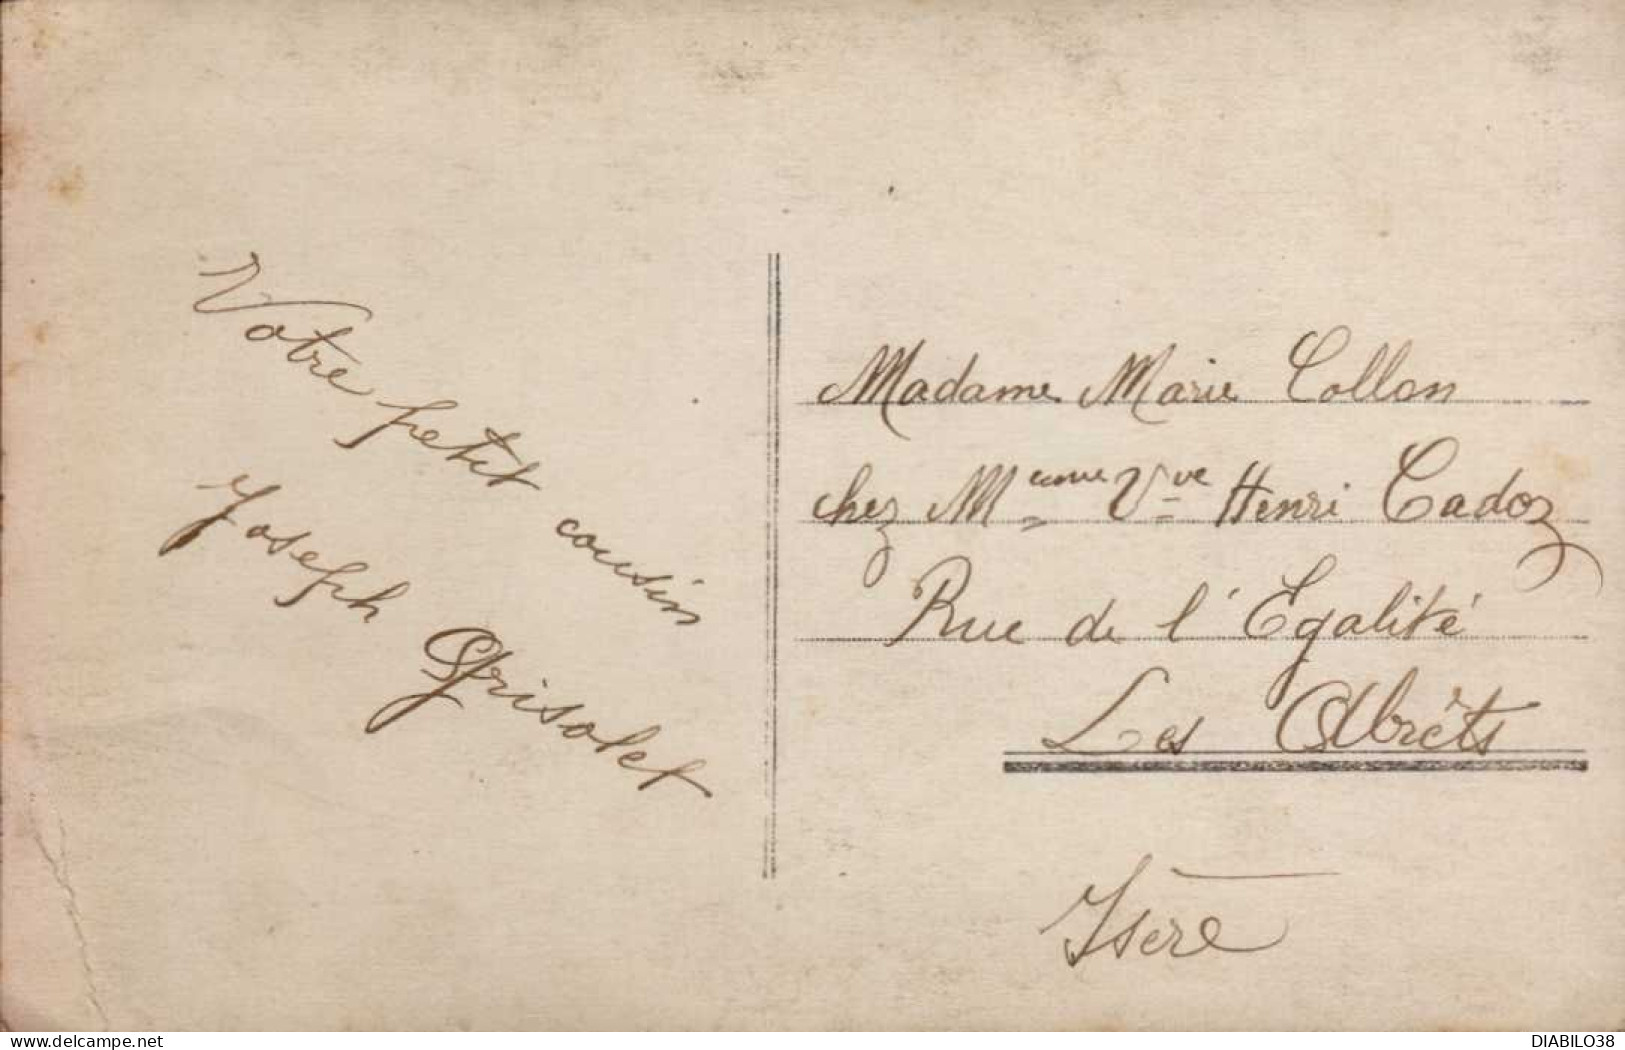 Votre petit cousin
Joseph Grisolet
Madame Marie Collon
chez Meme Vve Henri Cadoz
Rue de l'Egalité
Les Abrêts
Isère
www.delcampe.net
DIABILO38